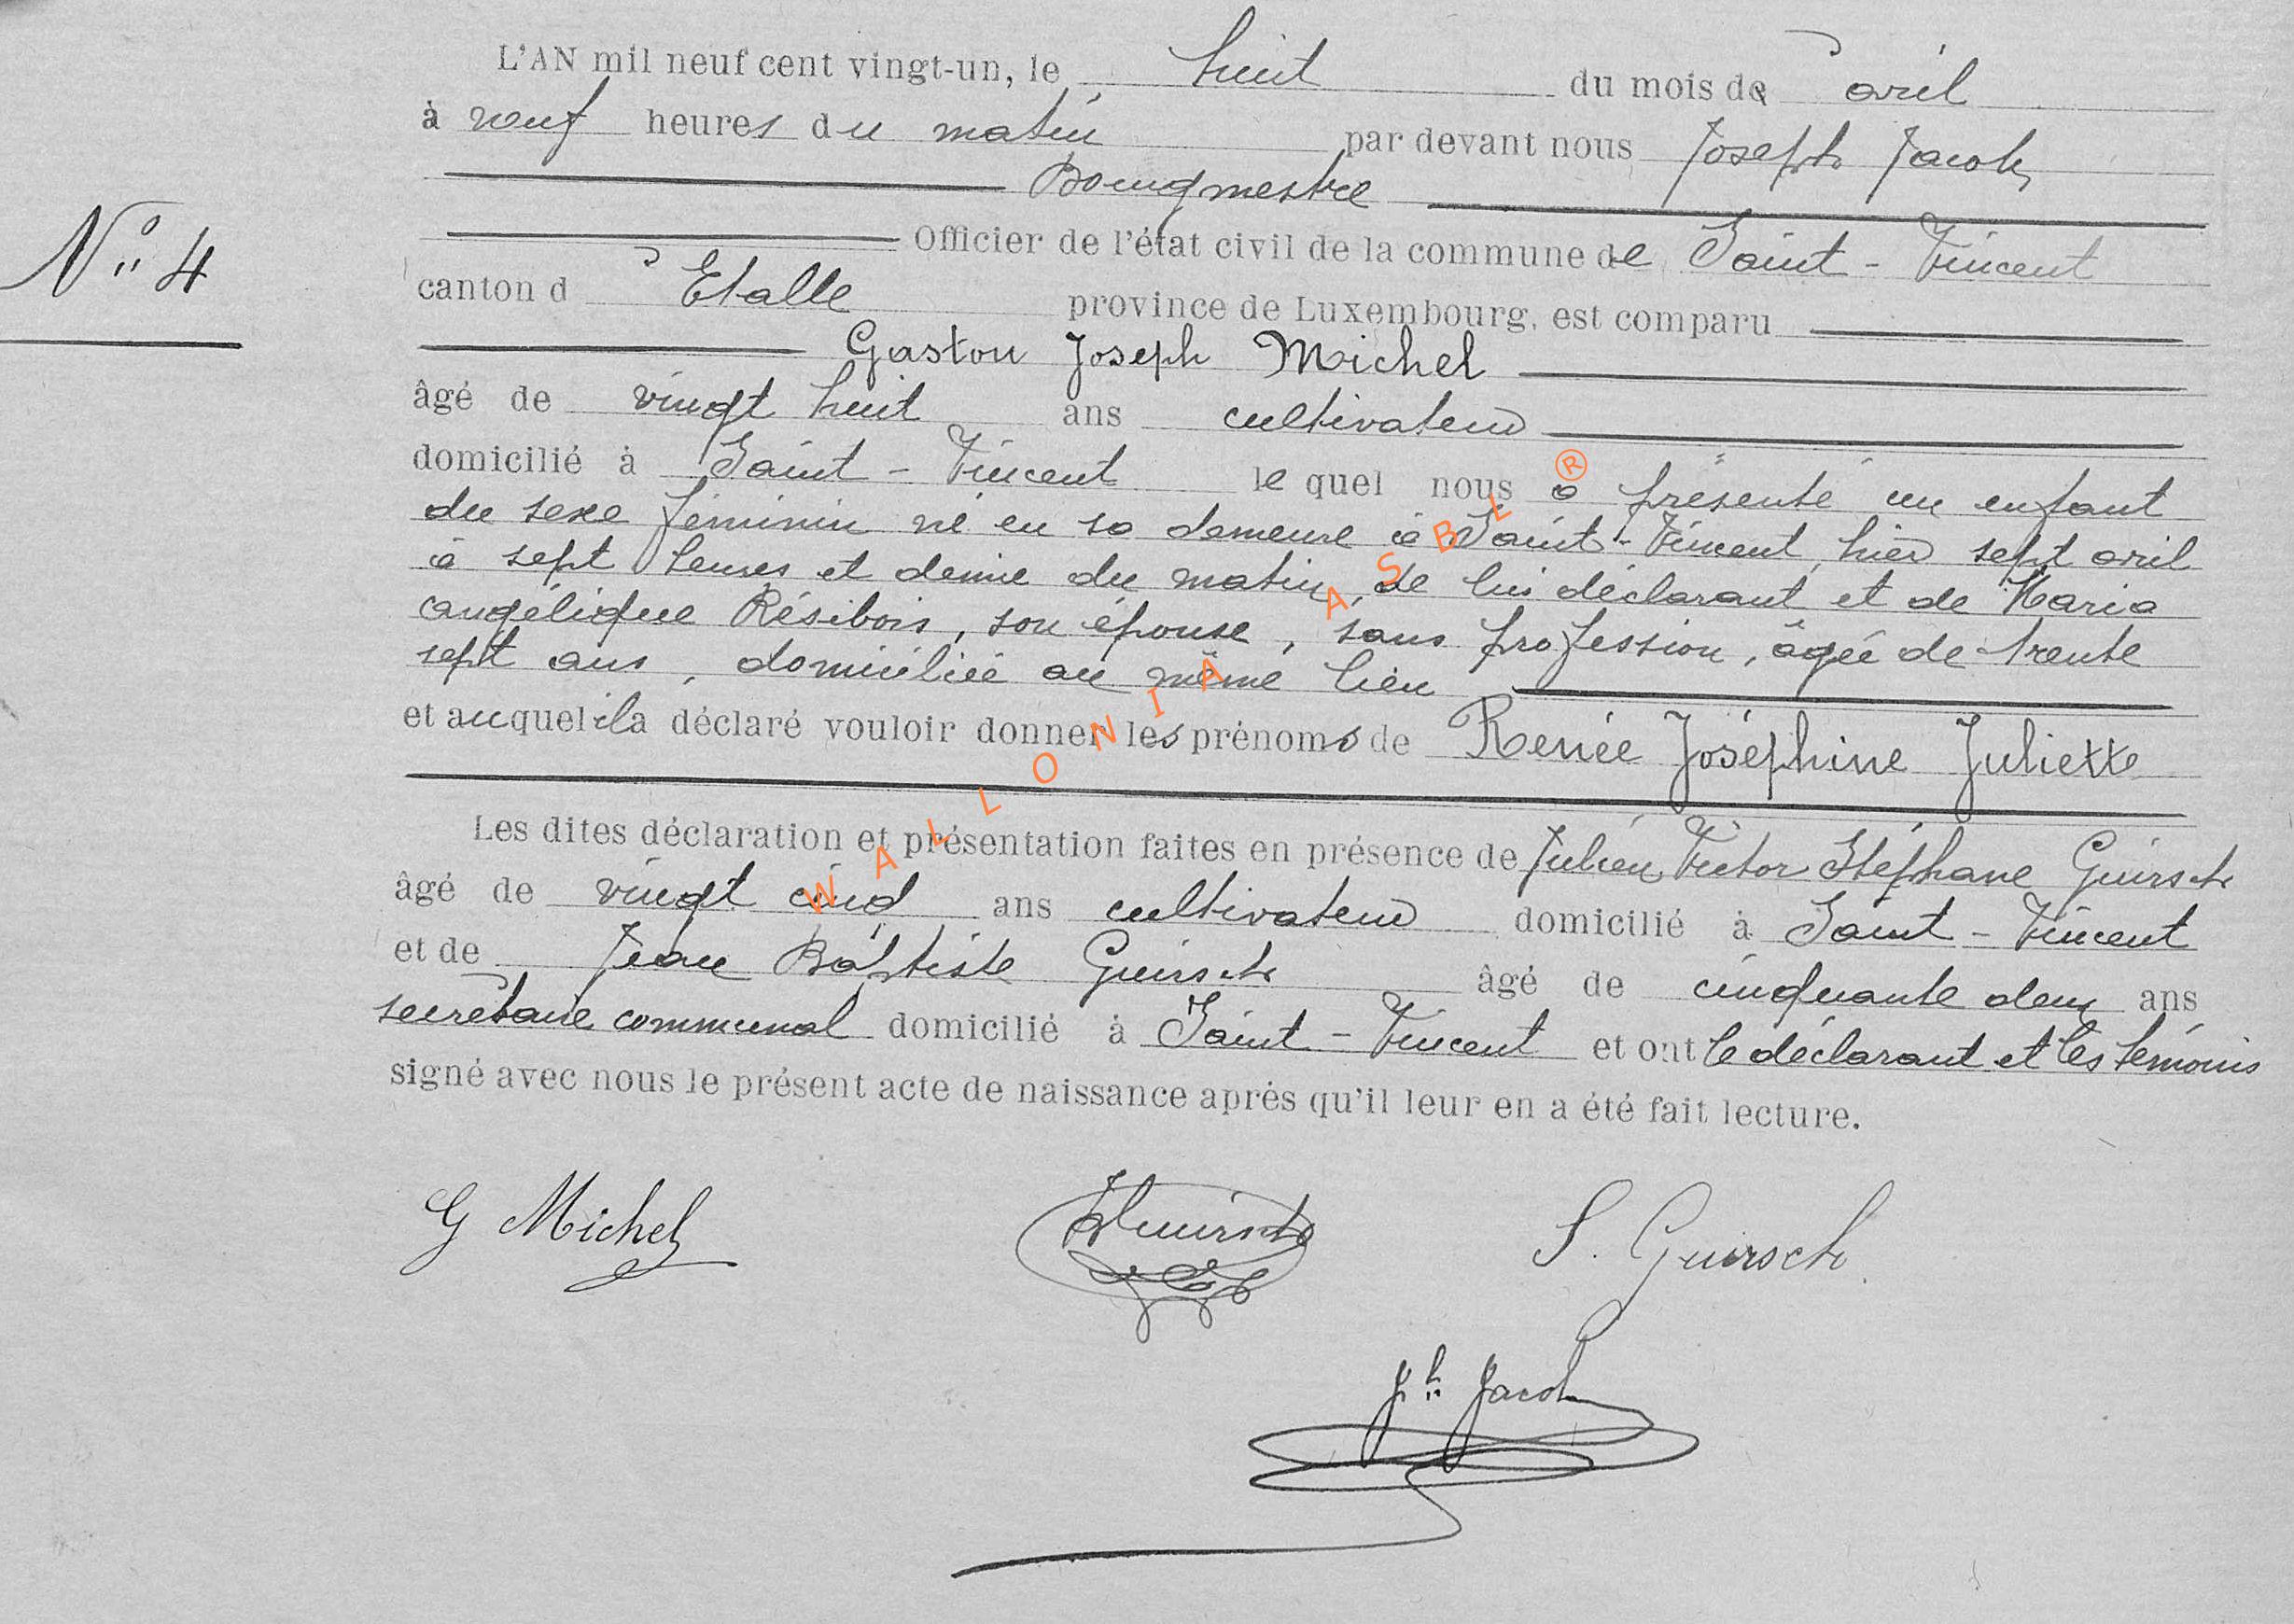 L'AN mil neuf cent vingt-un, le huit du mois d' avril
à neuf heures du matin par devant nous Joseph Jacob,
Bourgmestre
N° 4
Officier de l'état civil de la commune de Saint-Vincent
canton d'Etalle province de Luxembourg, est comparu
Gaston Joseph Michel
âgé de vingt huit ans cultivateur
domicilié à Saint-Vincent lequel nous a présenté un enfant
du sexe féminin né en sa demeure à Saint-Vincent, hier sept avril
à sept heures et demie du matin, de lui déclarant et de Maria
angélique Résibois, son épouse, sans profession, âgée de trente
sept ans, domiciliée au même lieu
et auquel il a déclaré vouloir donner les prénoms de Renée Joséphine Juliette
Les dites déclaration et présentation faites en présence de Julien Victor Stéphane Guirsch
âgé de vingt cinq ans cultivateur domicilié à Saint-Vincent
et de Jean Baptiste Guirsch âgé de cinquante deux ans
secrétaire communal domicilié à Saint-Vincent et ont le déclarant et les témoins
signé avec nous le présent acte de naissance après qu'il leur en a été fait lecture.
G Michel Guirsch S. Guirsch
Jh Jacob
WALLONIA ASBL ®